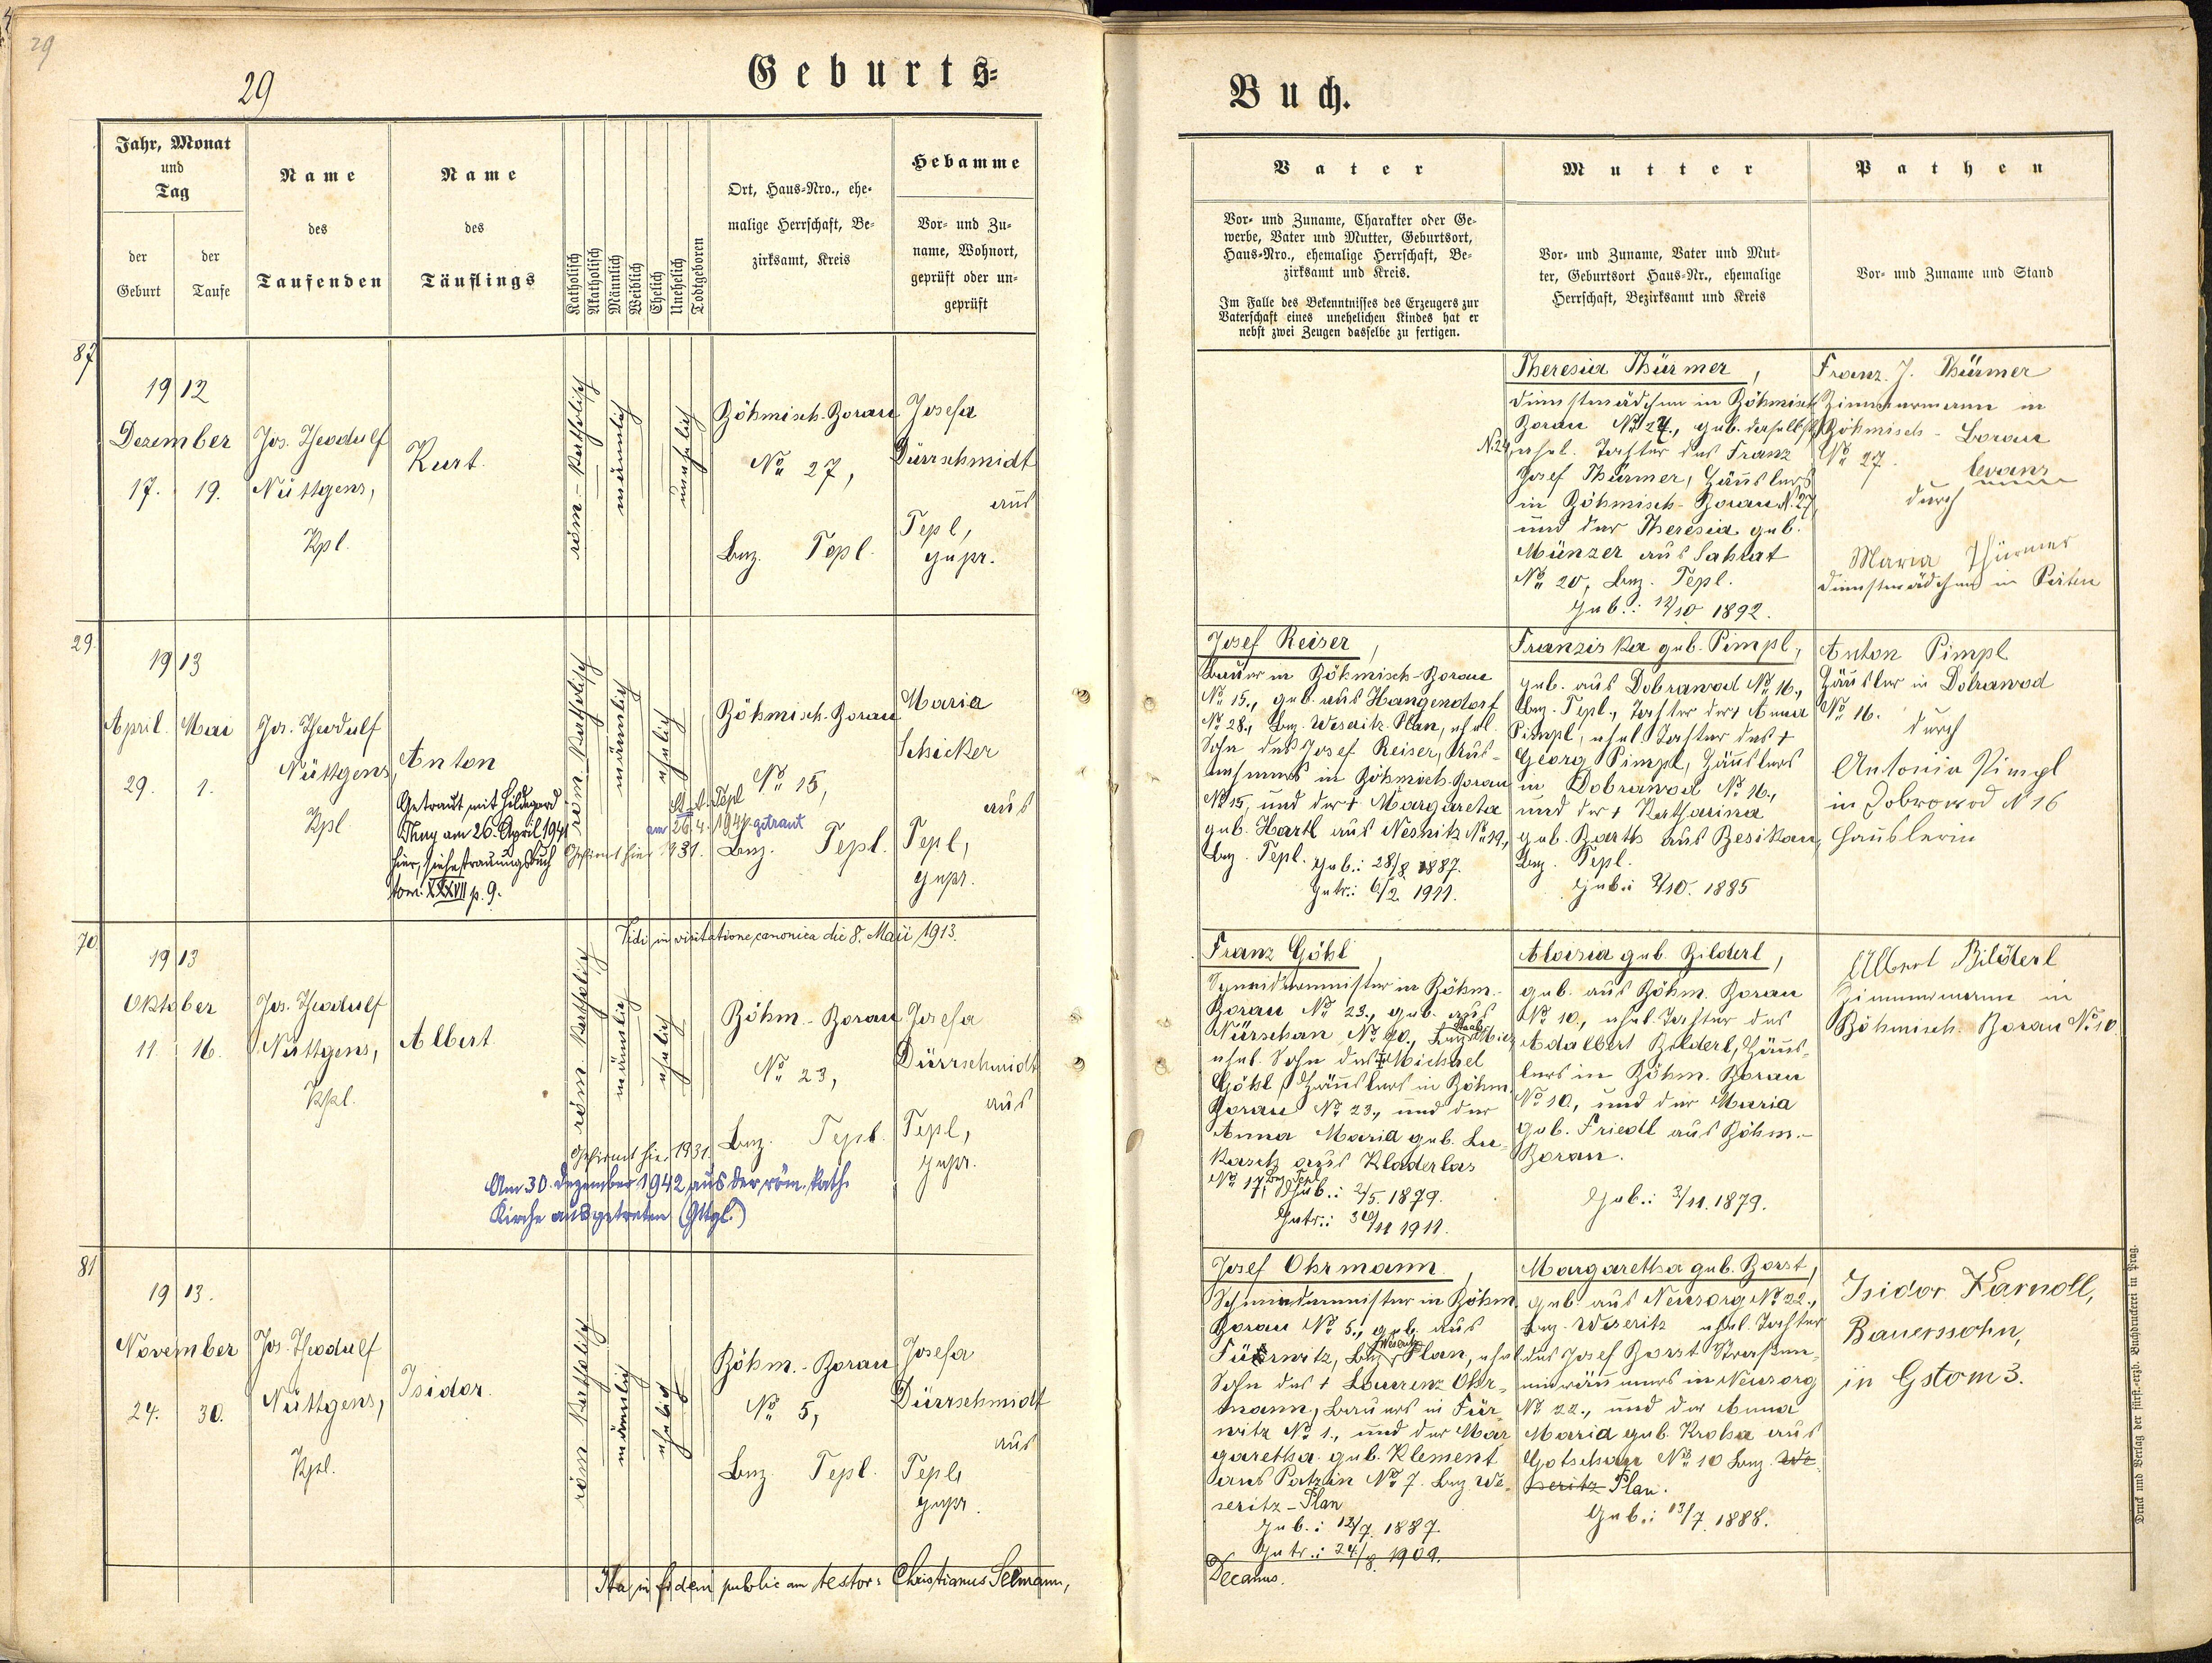 29
29
Geburts=
Jahr, Monat
und
Tag
der
Geburt
der
Taufe
Name
des
Taufenden
Name
des
Täuflings
Katholisch
Akatholisch
Männlich
Weiblich
Ehelich
Unehelich
Todtgeboren
Ort, Haus-Nro., ehe-
malige Herrschaft, Be-
zirksamt, Kreis
Hebamme
Vor- und Zu-
name, Wohnort,
geprüft oder un-
geprüft
87
1912
Dezember
17. 19.
Jos. Theodulf
Nüttgens,
Kpl.
Kurt.
röm.-katholisch
männlich
unehelich
Böhmisch-Borau
No 27,
Bez. Tepl.
Josefa
Dürrschmidt
aus
Tepl,
gepr.
29.
1913
April. Mai
29. 1.
Jos. Theodulf
Nüttgens,
Kpl
Anton
Getraut mit Hildegard
am 26. April 1941
hier, siehe Trauungsbuch
tom. XXXVII p. 9.
röm. katholisch
männlich
ehelich
St. A. Tepl
am 26. 4. 1941 getraut
Gefirmt hier 1931.
Böhmisch-Borau
No 15,
Bez. Tepl.
Maria
Schicker
aus
Tepl,
gepr.
70
Vidi in visitatione canonica die 8. Maii 1913.
1913
Oktober
11. 16.
Jos. Theodulf
Nüttgens,
Kpl.
Albert.
röm. katholisch
männlich
ehelich
Gefirmt hier 1931.
Am 30. Dezember 1942 aus der röm. kath.
Kirche ausgetreten (Gttgl.)
Böhm.-Borau
No 23,
Bez. Tepl.
Josefa
Dürrschmidt
aus
Tepl,
gepr.
81
1913.
November
24. 30.
Jos. Theodulf
Nüttgens,
Kpl.
Isidor.
röm. katholisch
männlich
ehelich
Böhm.-Borau
No 5,
Bez. Tepl.
Josefa
Dürrschmidt
aus
Tepl,
gepr.
Ita in fidem publicam testor: Christianus Selmann,
Buch.
Vater
Vor- und Zuname, Charakter oder Ge-
werbe, Vater und Mutter, Geburtsort,
Haus-Nro., ehemalige Herrschaft, Be-
zirksamt und Kreis.
Im Falle des Bekenntnisses des Erzeugers zur
Vaterschaft eines unehelichen Kindes hat er
nebst zwei Zeugen dasselbe zu fertigen.
Mutter
Vor- und Zuname, Vater und Mut-
ter, Geburtsort Haus-Nr., ehemalige
Herrschaft, Bezirksamt und Kreis
Pathen
Vor- und Zuname und Stand
Theresia Thürmer,
Dienstmädchen in Böhmisch
Borau No 27., geb. daselbst
No 29, ehel. Tochter des Franz
Josef Thürmer, Häuslers
in Böhmisch-Borau N. 27
und der Theresia geb.
Münzer aus Sahrat
No 20, Bez. Tepl.
Geb.: 12/10 1892.
Franz J. Thürmer
Zimmermann in
Böhmisch-Borau
No 27.
durch
Maria Thürmer
Dienstmädchen in
Josef Reiser,
Bauer in Böhmisch-Borau
No 15., geb. aus Hangendorf
No 28., Bez. Weseritz-Plan, ehel.
Sohn des Josef Reiser, Aus-
nehmers in Böhmisch-Borau
No 15, und der † Margareta
geb. Hartl aus Nesnitz No 19,
Bez. Tepl. Geb.: 28/8 1887.
Getr.: 6/2 1911.
Franziska geb. Pimpl,
geb. aus Dobrawod No 16.,
Bez. Tepl., Tochter der † Anna
Pimpl, ehel. Tochter des †
Georg Pimpl, Häuslers
in Dobrawod No 16.,
und der † Katharina
geb. Barth aus Besikau,
Bez. Tepl.
Geb.: 2/10. 1885
Anton Pimpl
Häusler in Dobrawod
No 16.
durch
Antonia Pimpl
in Dobrowod N 16
Häuslerin
Franz Göhl,
Schneidermeister in Böhm.-
Borau No 23., geb. aus
Nürschan No 90., Bez. Mies
ehel. Sohn des † Michael
Göhl, Häuslers in Böhm.
Borau No 23., und der
Anna Maria geb. Lu-
kasch aus Kladerlas
No 17, Bez. Tepl
Geb.: 2/5. 1879.
Getr.: 30/11 1911.
Aloisia geb. Bilderl,
geb. aus Böhm. Borau
No 10., ehel. Tochter des
Adalbert Bilderl, Häus-
lers in Böhm. Borau
No 10., und der Maria
geb. Friedl aus Böhm.-
Borau.
Geb.: 2/11. 1879.
Albert Bilderl
Zimmermann in
Böhmisch. Borau No 10.
Josef Ohrmann,
Schmiedemeister in Böhm.
Borau No 5., geb. aus
Fürwitz, Bez. Weseritz Plan, ehel
Sohn des † Lourenz Ohr-
mann, Bauers in Für-
witz No 1., und der Mar-
garetha geb. Klement
aus Patzin No 7. Bez. We-
seritz-Plan
Geb.: 12/7. 1887.
Getr.: 24./8. 1909.
Decanus.
Margaretha geb. Borst,
geb. aus Neusorg No 22.,
Bez. Weseritz ehel. Tochter
des Josef Borst Straßen-
einräumers in Neusorg
No 22., und der Anna
Maria geb. Kroha aus
Gotschau No 10 Bez. We-
seritz-Plan.
Geb.: 13/7. 1888.
Isidor Karnoll,
Bauerssohn,
in Gstom 3.
Druck und Verlag der fürst.-erzb. Buchdruckerei in Prag.